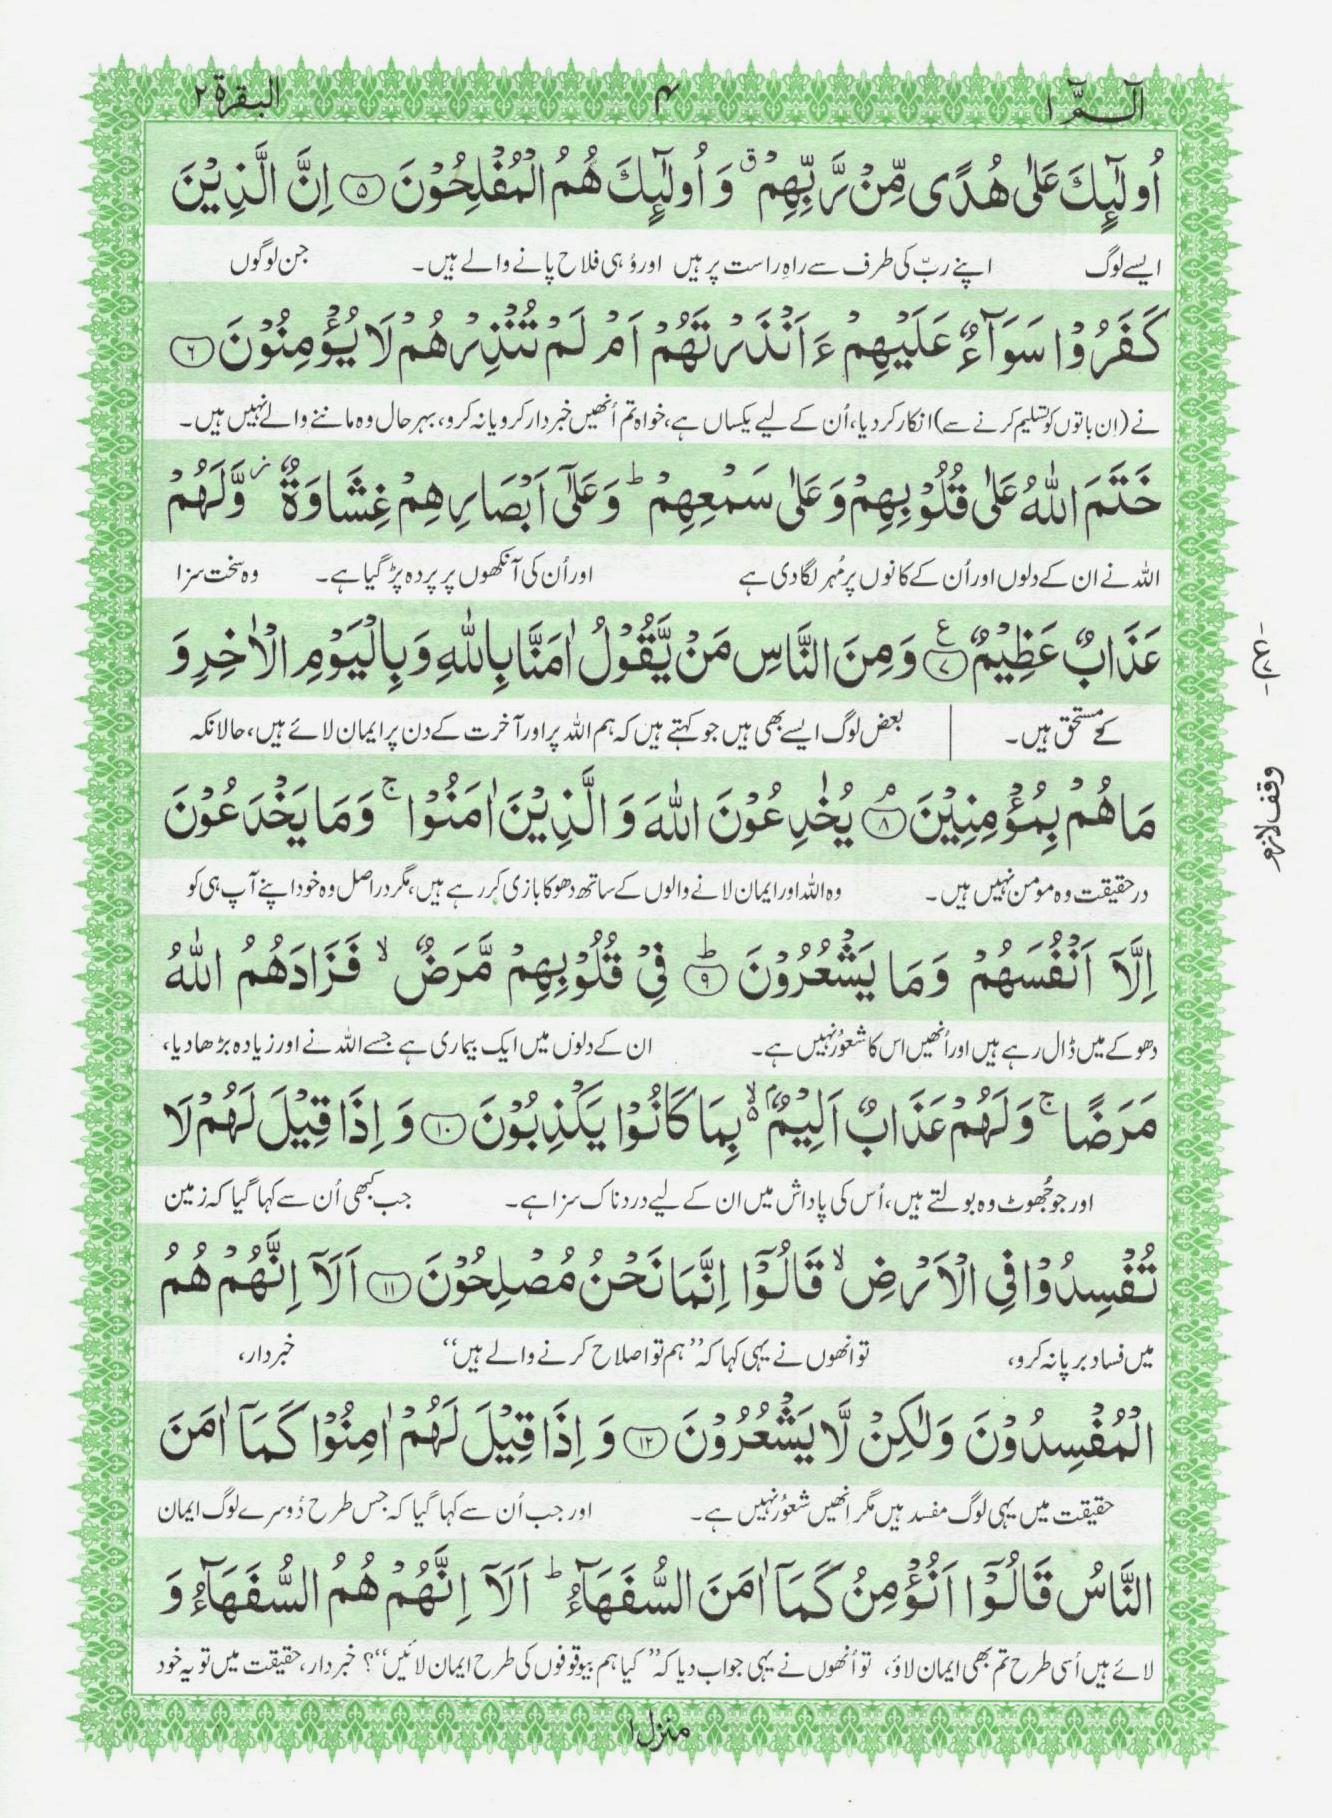 الٓـمّٓ ۱ ۴ البقرة ۲
اُولٰٓئِكَ عَلٰى هُدًى مِّنْ رَّبِّهِمْ ۗ وَ اُولٰٓئِكَ هُمُ الْمُفْلِحُوْنَ ﴿۵﴾ اِنَّ الَّذِيْنَ
ایسے لوگ اپنے ربّ کی طرف سے راہِ راست پر ہیں اور وُہی فلاح پانے والے ہیں۔ جن لوگوں
كَفَرُوْا سَوَآءٌ عَلَيْهِمْ ءَاَنْذَرْتَهُمْ اَمْ لَمْ تُنْذِرْهُمْ لَا يُؤْمِنُوْنَ ﴿۶﴾
نے (اِن باتوں کو تسلیم کرنے سے) انکار کر دیا، اُن کے لیے یکساں ہے، خواہ تم اُنھیں خبردار کرو یا نہ کرو، بہر حال وہ ماننے والے نہیں ہیں۔
خَتَمَ اللّٰهُ عَلٰى قُلُوْبِهِمْ وَعَلٰى سَمْعِهِمْ ؕ وَعَلٰٓى اَبْصَارِهِمْ غِشَاوَةٌ ؗ وَّلَهُمْ
اللہ نے ان کے دلوں اور اُن کے کانوں پر مُہر لگا دی ہے اور اُن کی آنکھوں پر پردہ پڑ گیا ہے۔ وہ سخت سزا
عَذَابٌ عَظِيْمٌ ﴿۷﴾ ع وَمِنَ النَّاسِ مَنْ يَّقُوْلُ اٰمَنَّا بِاللّٰهِ وَبِالْيَوْمِ الْاٰخِرِ وَ
کے مستحق ہیں۔ بعض لوگ ایسے بھی ہیں جو کہتے ہیں کہ ہم اللہ پر اور آخرت کے دن پر ایمان لائے ہیں، حالانکہ
مَا هُمْ بِمُؤْمِنِيْنَ ﴿۸﴾ۘ يُخٰدِعُوْنَ اللّٰهَ وَ الَّذِيْنَ اٰمَنُوْا ۚ وَمَا يَخْدَعُوْنَ
وقف لازم
در حقیقت وہ مومن نہیں ہیں۔ وہ اللہ اور ایمان لانے والوں کے ساتھ دھوکا بازی کر رہے ہیں، مگر دراصل وہ خود اپنے آپ ہی کو
اِلَّاۤ اَنْفُسَهُمْ وَمَا يَشْعُرُوْنَ ﴿۹﴾ؕ فِيْ قُلُوْبِهِمْ مَّرَضٌ ۙ فَزَادَهُمُ اللّٰهُ
دھوکے میں ڈال رہے ہیں اور اُنھیں اس کا شعور نہیں ہے۔ ان کے دلوں میں ایک بیماری ہے جسے اللہ نے اور زیادہ بڑھا دیا،
مَرَضًا ۚ وَلَهُمْ عَذَابٌ اَلِيْمٌۢ ۙ۬ بِمَا كَانُوْا يَكْذِبُوْنَ ﴿۱۰﴾ وَ اِذَا قِيْلَ لَهُمْ لَا
اور جو جُھوٹ وہ بولتے ہیں، اُس کی پاداش میں ان کے لیے دردناک سزا ہے۔ جب کبھی اُن سے کہا گیا کہ زمین
تُفْسِدُوْا فِي الْاَرْضِ ۙ قَالُوْۤا اِنَّمَا نَحْنُ مُصْلِحُوْنَ ﴿۱۱﴾ اَلَاۤ اِنَّهُمْ هُمُ
میں فساد برپا نہ کرو، تو انھوں نے یہی کہا کہ ”ہم تو اصلاح کرنے والے ہیں“ خبردار،
الْمُفْسِدُوْنَ وَلٰكِنْ لَّا يَشْعُرُوْنَ ﴿۱۲﴾ وَ اِذَا قِيْلَ لَهُمْ اٰمِنُوْا كَمَاۤ اٰمَنَ
حقیقت میں یہی لوگ مفسد ہیں مگر اِنھیں شعور نہیں ہے۔ اور جب اُن سے کہا گیا کہ جس طرح دُوسرے لوگ ایمان
النَّاسُ قَالُوْۤا اَنُؤْمِنُ كَمَاۤ اٰمَنَ السُّفَهَآءُ ؕ اَلَاۤ اِنَّهُمْ هُمُ السُّفَهَآءُ وَ
لائے ہیں اُسی طرح تم بھی ایمان لاؤ، تو اُنھوں نے یہی جواب دیا کہ ”کیا ہم بیوقوفوں کی طرح ایمان لائیں“؟ خبردار، حقیقت میں تو یہ خود
منزل ۱